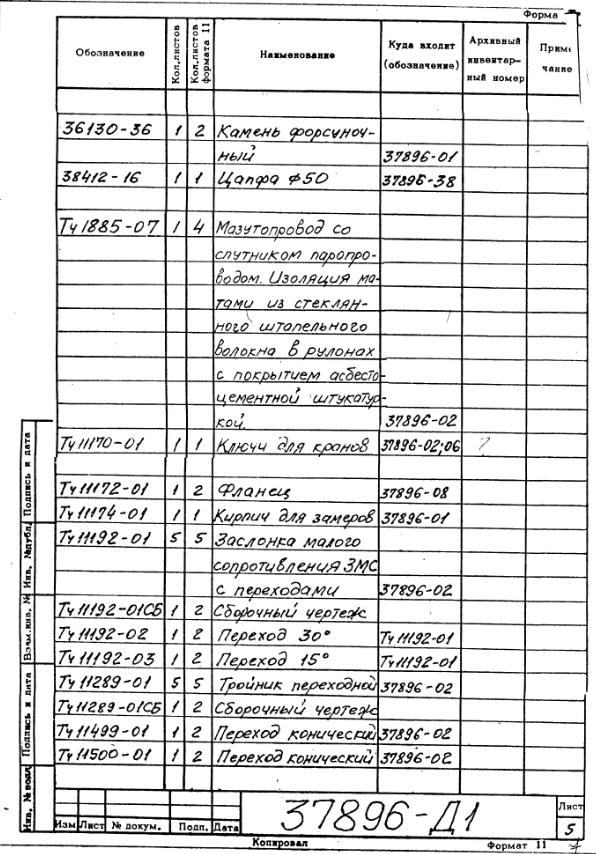 Форма
Обозначение Кол.листов Кол.листов формата 11 Наименование Куда входит (обозначение) Архивный инвентарный номер Приме чание
36130-36 1 2 Камень форсуноч-
ный 37896-01
38412-16 1 1 Цапфа ф50 37896-38
Тч1885-07 1 4 Мазутопровод со
спутником паропро-
водом. Изоляция ма-
тами из стеклян-
ного штапельного
волокна в рулонах
с покрытием асбесто-
цементной штукатур-
кой. 37896-02
Тч11170-01 1 1 Ключи для кранов 37896-02;06 ?
Тч11172-01 1 2 Фланец 37896-08
Тч11174-01 1 1 Кирпич для замеров 37896-01
Тч11192-01 5 5 Заслонка малого
сопротивления ЗМС
с переходами 37896-02
Тч11192-01СБ 1 2 Сборочный чертеж
Тч11192-02 1 2 Переход 30° Тч11192-01
Тч11192-03 1 2 Переход 15° Тч11192-01
Тч11289-01 5 5 Тройник переходной 37896-02
Тч11289-01СБ 1 2 Сборочный чертеж
Тч11499-01 1 2 Переход конический 37896-02
Тч11500-01 1 2 Переход конический 37896-02
Подпись и дата
Инв. №дубл.
Взам.инв. №
Подпись и дата
Инв. № подл
Изм Лист № докум. Подп. Дата
37896-Д1
Лист
5
Копировал Формат 11